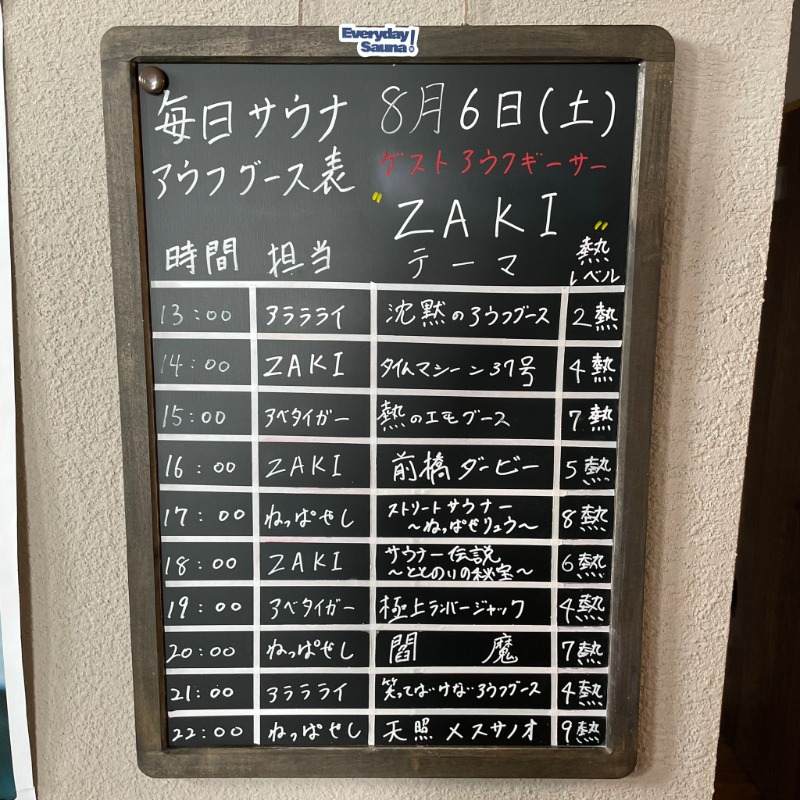 Everyday
Sauna!
毎日サウナ 8月6日(土)
アウフグース表 ゲストアウフギーサー
"ZAKI"
時間 担当 テーマ 熱レベル
13:00 アララライ 沈黙のアウフグース 2熱
14:00 ZAKI タイムマシーン37号 4熱
15:00 アベタイガー 熱のエモグース 7熱
16:00 ZAKI 前橋ダービー 5熱
17:00 ねっぱせし ストリートサウナー
~ねっぱせリュウ~ 8熱
18:00 ZAKI サウナー伝説
~ととのいの秘宝~ 6熱
19:00 アベタイガー 極上ランバージャック 4熱
20:00 ねっぱせし 閻魔 7熱
21:00 アララライ 笑ってはいけないアウフグース 4熱
22:00 ねっぱせし 天照メスサノオ 9熱